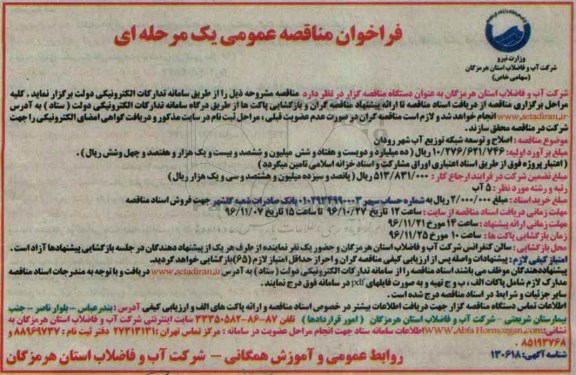 وزارت نیرو
شرکت آب و فاضلاب استان هرمزگان
(سهامی خاص)
فراخوان مناقصه عمومی یک مرحله ای
شرکت آب و فاضلاب استان هرمزگان به عنوان دستگاه مناقصه گزار در نظر دارد مناقصه مشروحه ذیل را از طریق سامانه تدارکات الکترونیکی دولت برگزار نماید . کلیه
مراحل برگزاری مناقصه از دریافت اسناد مناقصه تا ارائه پیشنهاد مناقصه گران و بازگشایی پاکت ها از طریق درگاه سامانه تدارکات الکترونیکی دولت ( ستاد ) به آدرس
www.setadiran.ir انجام خواهد شد و لازم است مناقصه گران در صورت عدم عضویت قبلی ، مراحل ثبت نام در سایت مذکور و دریافت گواهی امضای الکترونیکی را جهت
شرکت در مناقصه محقق سازند .
موضوع مناقصه : اصلاح و توسعه شبکه توزیع آب شهر رودان
مبلغ برآورد اولیه : ۱۰/۲۷۶/۶۲۱/۷۴۶ ریال ( ده میلیارد و دویست و هفتاد و شش میلیون و ششصد و بیست و یک هزار و هفتصد و چهل وشش ریال) .
(اعتبار پروژه فوق از طریق اسناد اعتباری اوراق مشارکت و اسناد خزانه اسلامی تامین میگردد )
مبلغ تضمین شرکت در فرایند ارجاع کار : ۵۱۳/۸۳۱/۰۰۰ ریال (پانصد و سیزده میلیون و هشتصد و سی و یک هزار ریال)
رتبه و رشته مورد نظر : ۵ آب
مبلغ خرید اسناد : مبلغ ۲/۰۰۰/۰۰۰ ریال به شماره حساب سپهر ۰۱۰۲۹۳۴۹۹۰۰۰۳ بانک صادرات شعبه گلشهر جهت فروش اسناد مناقصه
مهلت زمانی دریافت اسناد مناقصه از سایت : ساعت ۱۲ تاریخ ۹۶/۱۰/۲۷ تا ساعت ۱۵ تاریخ ۹۶/۱۱/۰۷
مهلت زمانی ارائه پیشنهاد : ساعت ۱۴ مورخ ۹۶/۱۱/۲۱
زمان بازگشایی پاکت ها : ساعت ۱۰ مورخ ۹۶/۱۱/۲۵
محل بازگشایی : سالن کنفرانس شرکت آب و فاضلاب استان هرمزگان و حضور یک نفر نماینده از طرف هر یک از پیشنهاد دهندگان در جلسه بازگشایی پیشنهادها آزاد است .
امتیاز کیفی لازم : پیشنهادات واصله پس از ارزیابی کیفی مناقصه گران و احراز حداقل امتیاز لازم (۶۵)بازگشایی خواهد گردید.
پیشنهاددهندگان موظف می باشند اسناد مناقصه را از سامانه تدارکات الکترونیکی دولت ( ستاد ) به آدرس www.setadiran.ir دریافت و با توجه به مندرجات اسناد مناقصه
مدارک لازم شامل پاکات الف ، ب وج تهیه و به صورت فایلهای pdf در سامانه فوق درج نمایند .
سایر جزئیات و شرایط در اسناد مناقصه درج شده است .
اطلاعات تماس دستگاه مناقصه گزار جهت دریافت اطلاعات بیشتر در خصوص اسناد مناقصه و ارائه پاکت های الف و ارزیابی کیفی آدرس : بندرعباس - بلوار ناصر - جنب
بیمارستان شریعتی - شرکت آب و فاضلاب استان هرمزگان ( امور قراردادها ) تلفن ۸۷-۸۶-۳۳۳۵۰۵۸۲ سایت اینترنتی شرکت آب و فاضلاب استان هرمزگان به
نشانی: WWW.Abfa Hormozgan.com اطلاعات سامانه ستاد جهت انجام مراحل عضویت در سامانه : مرکز تماس تهران : ۲۷۳۱۳۱۳۱ دفتر ثبت نام : ۸۸۹۶۹۷۳۷ و
۸۵۱۹۳۷۶۸ .
شناسه آگهی: ۱۳۰۶۱۸
روابط عمومی و آموزش همگانی - شرکت آب و فاضلاب استان هرمزگان